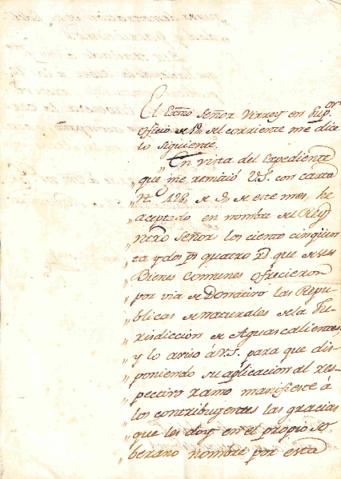 El Exmo Señor Virrey en Supor
oficio de 12 del corriente me dice
lo siguiente.
„ En vista del Expediente
„ que me remitió V.S. con carta
„ de este mes, he
„ aceptado en nombre del Rey
„ Ntro Señor los ciento cinqüen
„ ta y dos ps quatro rs que de sus
„ Bienes Comunes ofrecieron
„ por via de Donativo las Repu
„ blicas de naturales de la Ju
„ risdiccion de Aguascalientes
„ y lo aviso á V.S. para que dis
„ poniendo su aplicacion al res
„ pectivo ramo manifieste á
„ los contribuyentes las gracias
„ que les doy en el propio So
„ berano nombre por esta